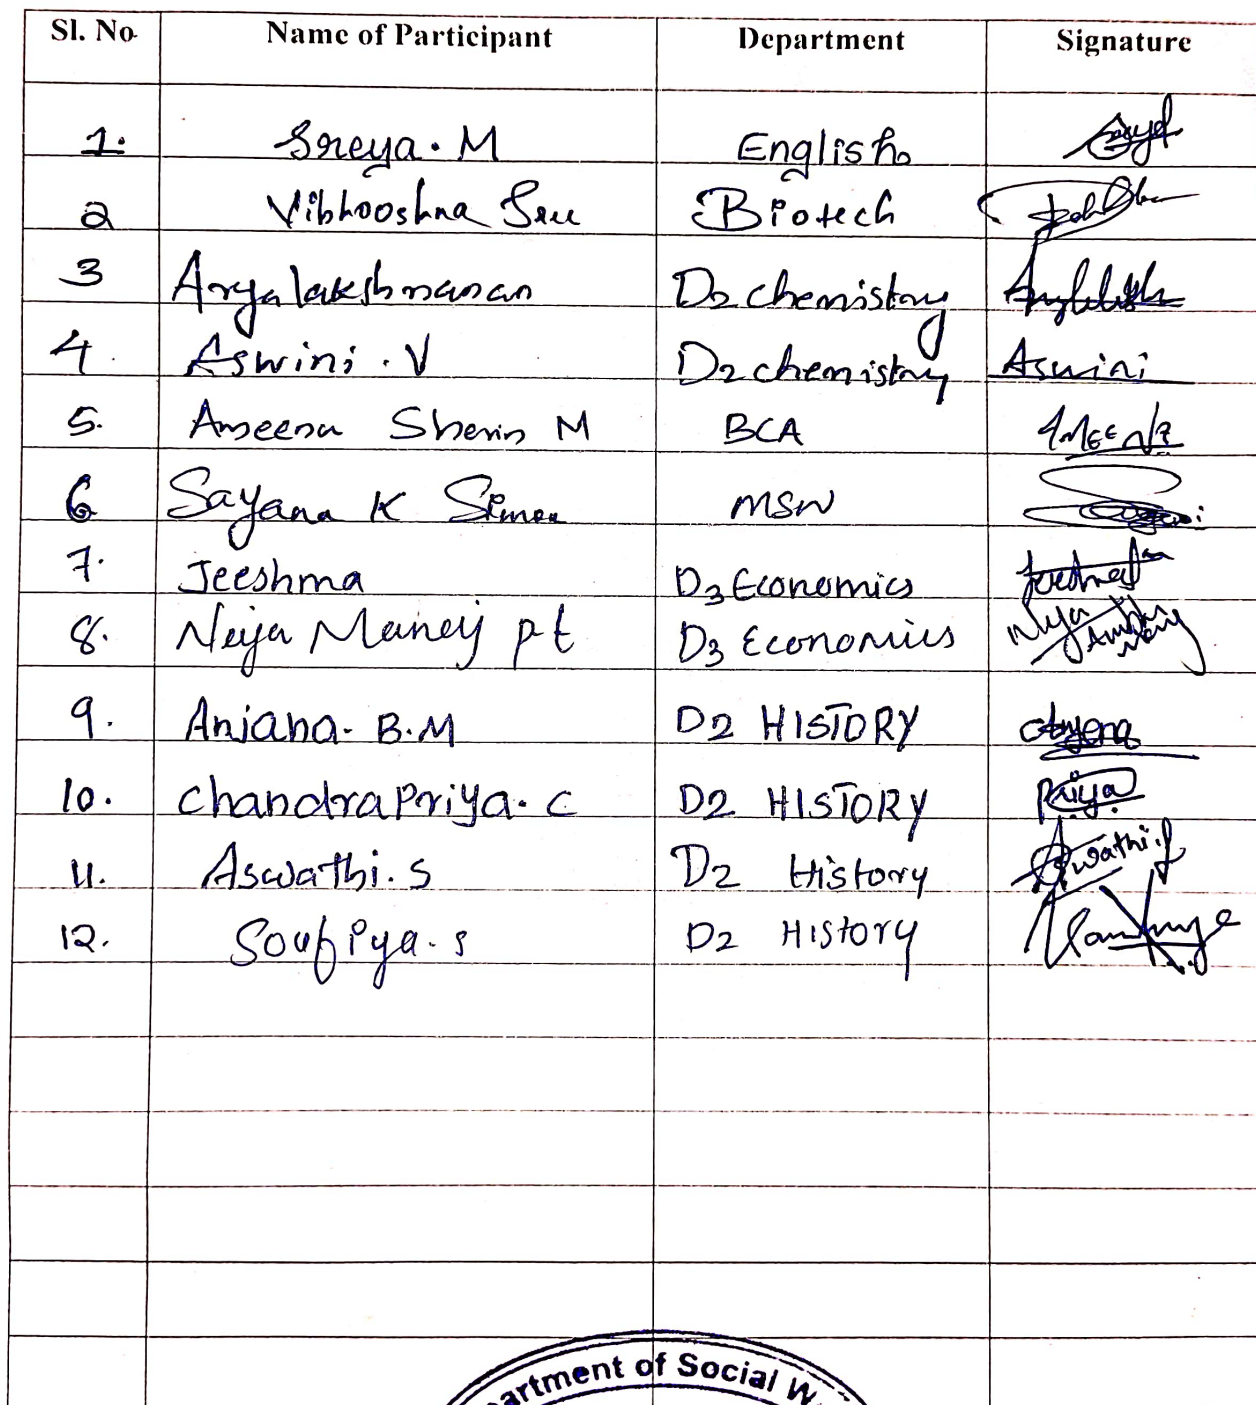 Sl. No Name of Participant Department Signature
1. Sreya. M English
2 Vibhooshna Sree Biotech
3 Aryalakshmanan D2 chemistry
4. Aswini. V D2 chemistry Aswini
5. Ameena Sherin M BCA AMEENA
6 Sayana K Simon MSW
7. Jeeshma D3 Economics
8. Neija Maneij pt D3 Economics
9. Anjana. B.M D2 HISTORY
10. Chandrapriya. C D2 HISTORY Priya
11. Aswathi. S D2 History Aswathi.S
12. Soufiya. S D2 History
artment of Social W